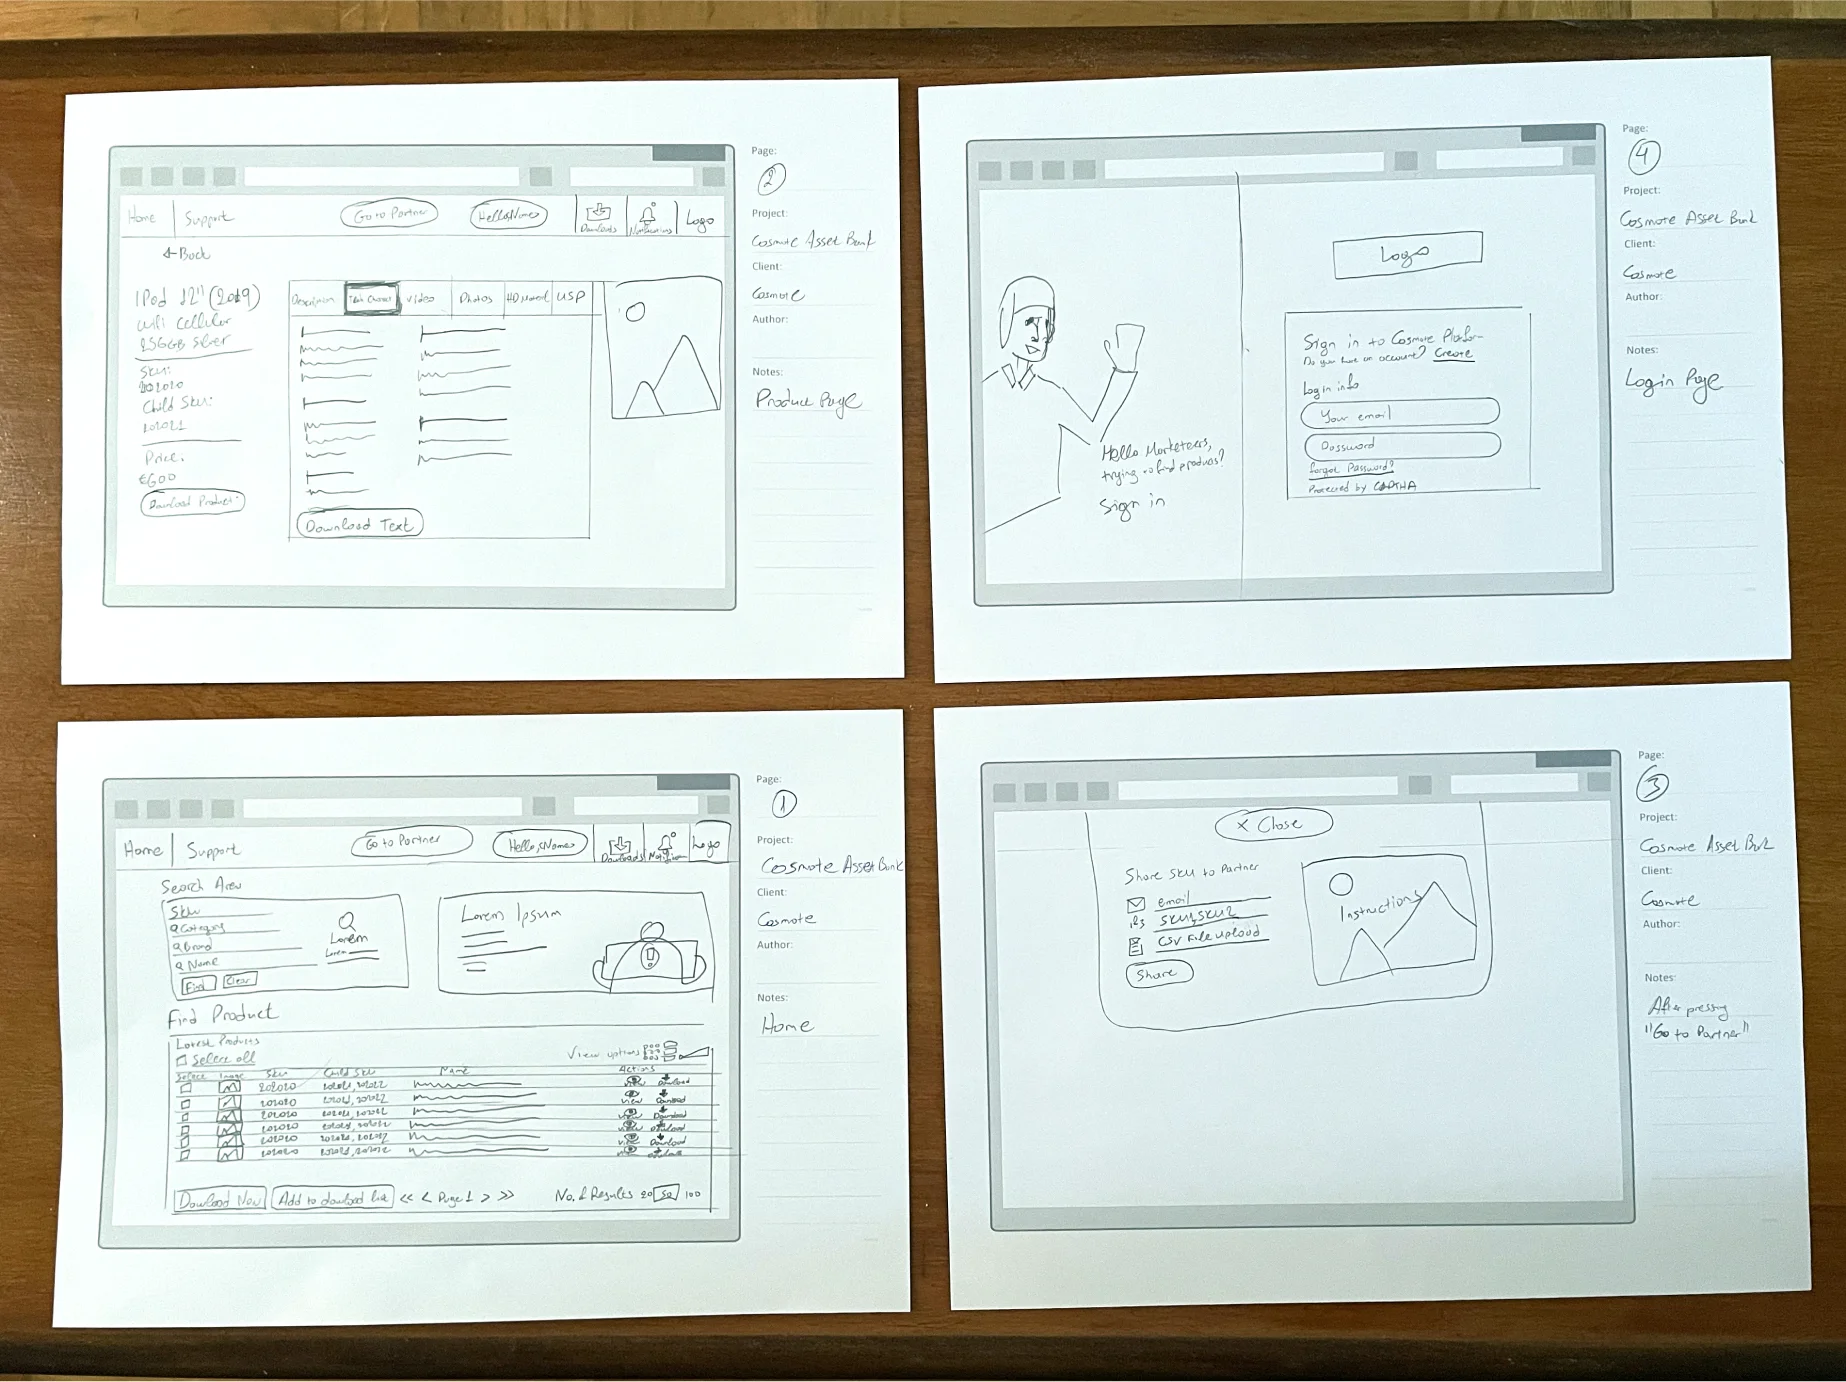 Home
Support
Go to Partner
Hello, Name
Downloads
Notifications
Logo
Back
IPad 12" (2019)
Wifi Cellular
256GB Silver
Sku:
202020
Child Sku:
Price:
€600
Download Product
Description
Video
Photos
HD Material
USP
Download Text
Page:
2
Project:
Cosmote Asset Bank
Client:
Cosmote
Author:
Notes:
Product Page
Logo
Sign in to Cosmote Platform
Do you have an account? Create
Login info
Your email
Password
Forgot Password?
Protected by CAPTHA
Hello Marketeers,
trying to find products?
Sign in
Page:
4
Project:
Cosmote Asset Bank
Client:
Cosmote
Author:
Notes:
Login Page
Home
Support
Go to Partner
Hello, Name
Downloads
Notification
Logo
Search Area
Sku
Category
Brand
Name
Find
Clear
Lorem
Lorem
Lorem Ipsum
Find Product
Latest Products
Select all
View options
Select Image Sku Child Sku Name Actions
202020 view Download
202020 view Download
202020 view Download
202020 view Download
202020 view Download
202020 view Download
Download Now
Add to download list
<< < Page 1 > >>
No. of Results 20 50 100
Page:
1
Project:
Cosmote Asset Bank
Client:
Cosmote
Author:
Notes:
Home
X Close
Share sku to Partner
email
sku1, sku2
CSV File upload
Share
Instructions
Page:
3
Project:
Cosmote Asset Bank
Client:
Cosmote
Author:
Notes:
After pressing
"Go to Partner"